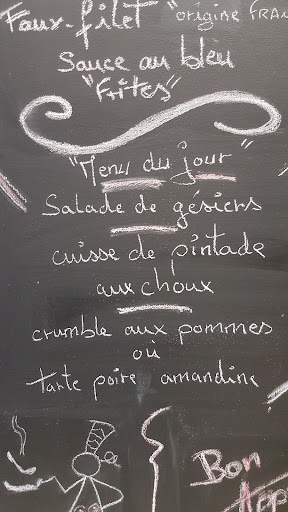 Faux-filet "origine FRAN
Sauce au bleu
"Frites"
"Menu du jour"
Salade de gésiers
cuisse de pintade
aux choux
crumble aux pommes
où
tarte poire amandine
Bon
App